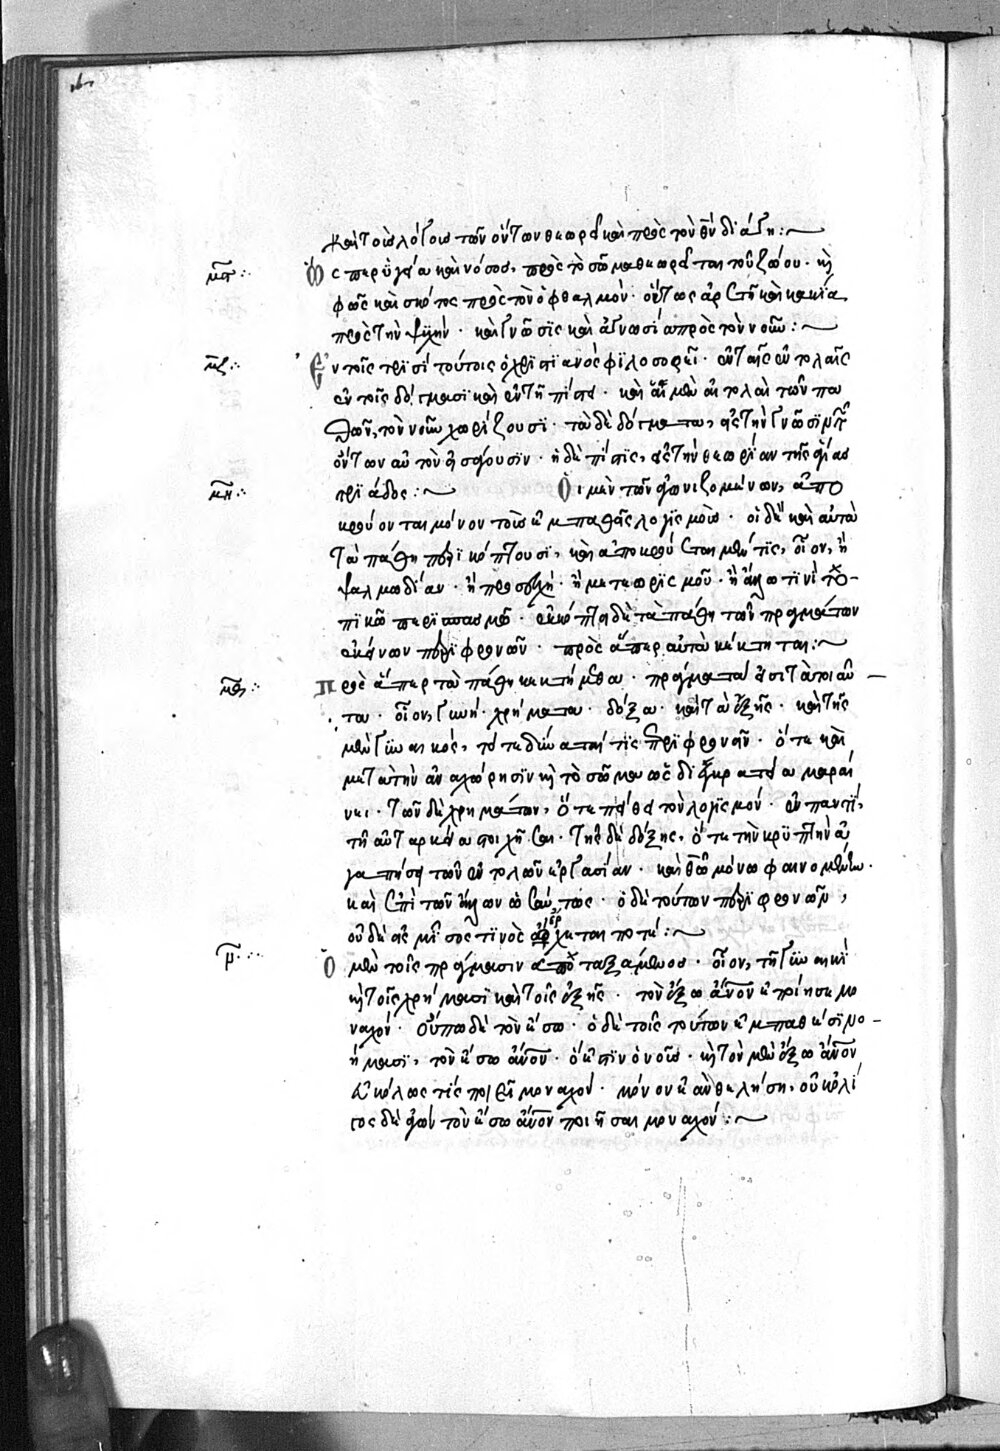 καὶ τοῖς λόγοις τῶν ὄντων θεωρεῖ καὶ πρὸς τὸν θν διάγει:~
μς Ὥσπερ ὑγεία καὶ νόσος, πρὸς τὸ σῶμα θεωρεῖται τοῦ ζώου· κὶ
φῶς καὶ σκότος πρὸς τὸν ὀφθαλμόν· οὕτως ἀρετὴ καὶ κακία
πρὸς τὴν ψυχήν· καὶ γνῶσις καὶ ἀγνωσία πρὸς τὸν νοῦν:~
μζ Ἐν τοῖς τρισὶ τούτοις ὁ χριστιανὸς φιλοσοφεῖ· ἐν ταῖς ἐντολαῖς
ἐν τοῖς δόγμασι καὶ ἐν τῇ πίστει· καὶ αἱ μὲν ἐντολαὶ τῶν πα
θῶν, τὸν νοῦν χωρίζουσι· τὰ δὲ δόγματα, εἰς τὴν γνῶσιν τῶν
ὄντων αὐτὸν εἰσάγουσιν· ἡ δὲ πίστις, εἰς τὴν θεωρίαν τῆς ἁγίας
μη τριάδος:~ Οἱ μὲν τῶν ἀγωνιζομένων, ἀπο
κρούονται μόνον τοὺς ἐμπαθεῖς λογισμούς· οἱ δὲ καὶ αὐτὰ
τὰ πάθη περικόπτουσι, καὶ ἀποκρούεται μέν τις, οἷον, ἢ
ψαλμωδίαν· ἢ προσευχῇ· ἢ μετεωρισμοῦ· ἢ ἄλλω τινὶ το
πικῶ περισπασμῶ· ἐκκόπτει δὲ τὰ πάθη τῶν πραγμάτων
ἐκείνων περιφρονῶν· πρὸς ἅπερ αὐτὰ κέκτηται:~
μθ Πρὸς ἅπερ τὰ πάθη κεκτήμεθα· πράγματά εἰσι τὰ τοιαῦ
τα· οἷον, γυνή· χρήματα· δόξα· καὶ τὰ ἑξῆς· καὶ τῆς
μὲν γυναικός, τότε δύναταί τις περιφρονεῖν· ὅτε καὶ
μετὰ τὴν ἀναχώρησιν κὶ τὸ σῶμα ὡς δι ἐγκρατεία μαραί
νει· τῶν δὲ χρημάτων, ὅτε πείθει τὸν λογισμόν· ἐν παντί,
τῇ αὐταρκεία στοιχῆσαι· τῆς δὲ δόξης, ὅτε τὴν κρυπτὴν ἀ
γαπήσει τῶν ἐντολῶν ἐργασίαν· καὶ θῶ μόνω φαινομένην·
καὶ ἐπὶ τῶν ἄλλων ὡσαύτως· ὁ δὲ τούτων περιφρονῶν,
οὐδὲ εἰς μῖσος τινὸς ἔρχεται ποτέ:~
ν Ὁ μὲν τοῖς πράγμασιν ἀποταξάμενος· οἷον, τῇ γυναικὶ
κὶ τοῖς χρήμασι καὶ τοῖς ἑξῆς· τὸν ἔξω ἄνον ἐποίησε μο
ναχόν· οὔπω δὲ τὸν ἔσω· ὁ δὲ τοῖς τούτων ἐμπαθέσι νο
ήμασι, τὸν ἔσω ἄνον· ὅ ἐστιν ὁ νοῦς· κὶ τὸν μὲν ἔξω ἄνον
εὐκόλως τίς ποιεῖ μοναχόν· μόνον ἐὰν θελήση, οὐκ ὀλί
γος δὲ ἀγών τὸν ἔσω ἄνον ποιῆσαι μοναχόν:~